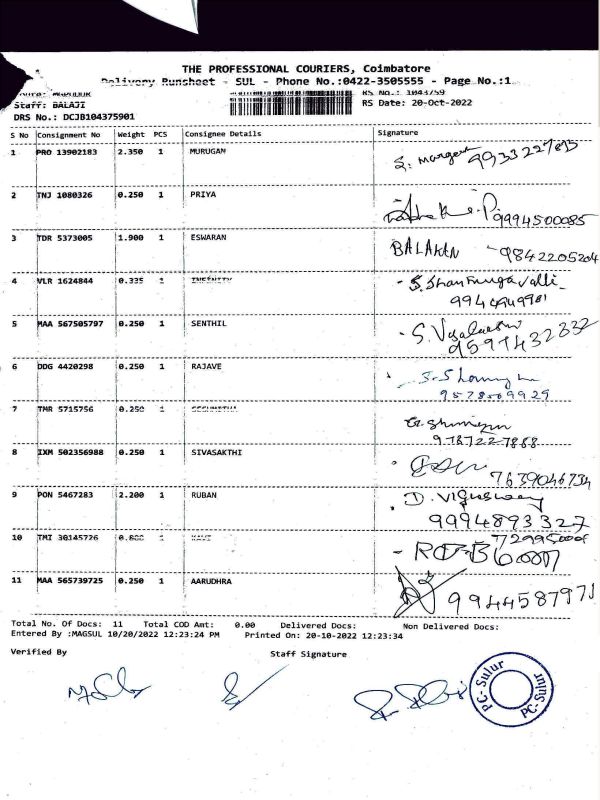 THE PROFESSIONAL COURIERS, Coimbatore
Delivery Runsheet - SUL - Phone No.:0422-3505555 - Page No.:1
RS No.: 1043759
Staff: BALAJI RS Date: 20-Oct-2022
DRS No.: DCJB104375901
S No Consignment No Weight PCS Consignee Details Signature
1 PRO 13902183 2.350 1 MURUGAN
2 TNJ 1080326 0.250 1 PRIYA
9994500085
3 TDR 5373005 1.900 1 ESWARAN BALAKAN 9842205204
4 VLR 1624844 0.335 1 INFINITY S. Shanmugavalli
5 MAA 567505797 0.250 1 SENTHIL
9597432832
6 DDG 4420298 0.250 1 RAJAVE
9578509929
7 TMR 5715756 0.250 1
9787227888
8 IXM 502356988 0.250 1 SIVASAKTHI
7639046734
9 PON 5467283 2.200 1 RUBAN
9994893327
10 TMI 30145726 0.800 1 KAVI
11 MAA 565739725 0.250 1 AARUDHRA 9944587971
Total No. Of Docs: 11 Total COD Amt: 0.00 Delivered Docs: Non Delivered Docs:
Entered By :MAGSUL 10/20/2022 12:23:24 PM Printed On: 20-10-2022 12:23:34
Verified By Staff Signature
PC-Sulur PC-Sulur